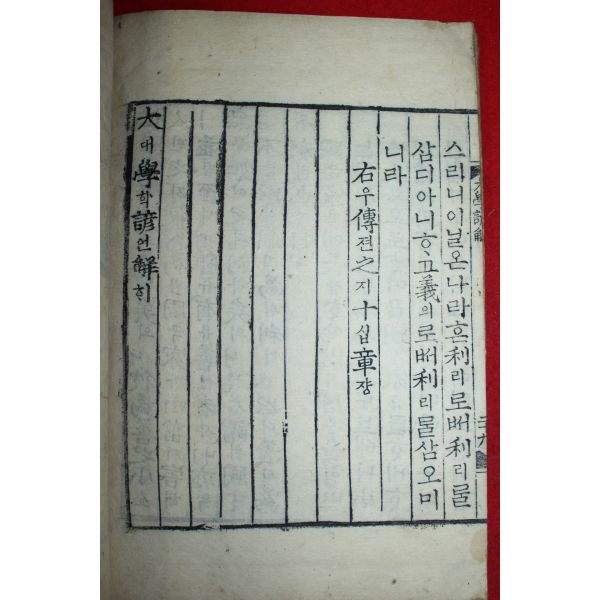 스리니이닐온나라흔利리로ᄡᅥ利리를
삼디아니ᄒᆞ고義의로ᄡᅥ利리를삼오미
니라
右우傳젼之지十십章쟝
大대學학諺언解ᄒᆡ